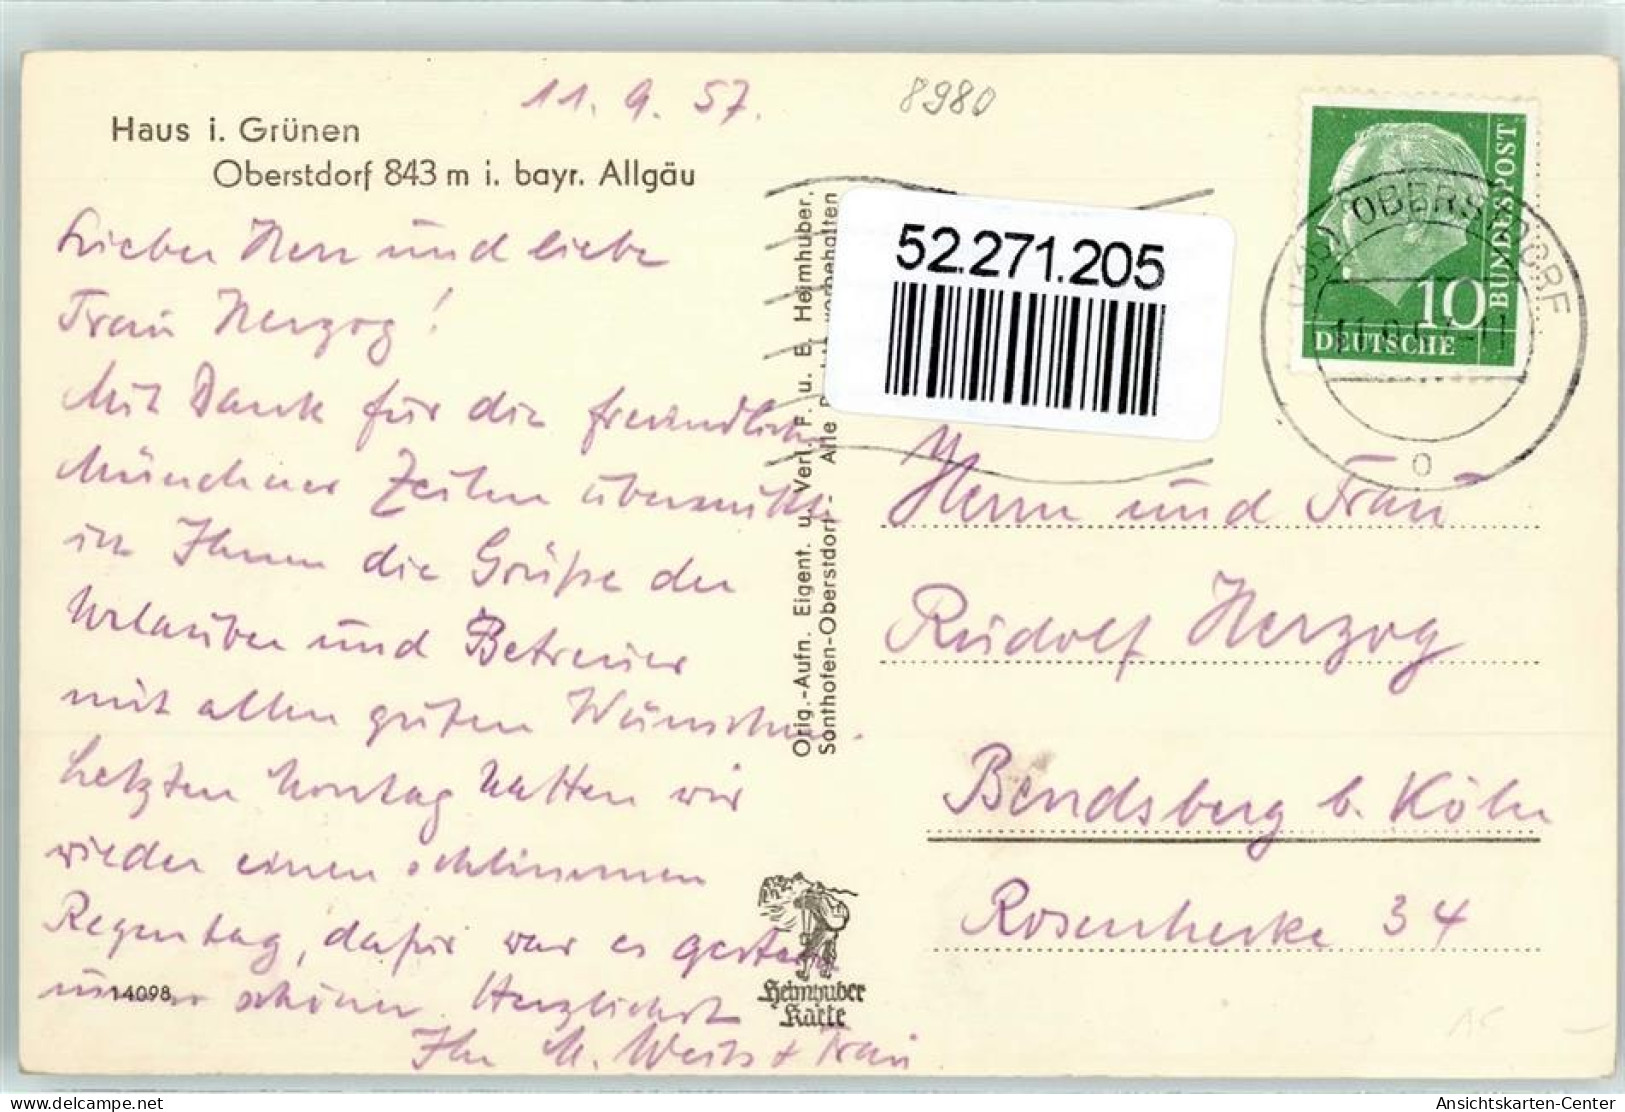 11. 9. 57.
8980
Haus i. Grünen
Oberstdorf 843 m i. bayr. Allgäu
Lieber Herr und liebe
Frau Herzog!
Mit Dank für die freundlichen
Münchner Zeilen übermitteln
wir Ihnen die Grüße der
Urlauber und Betreuer
mit allen guten Wünschen.
Letzten Montag hatten wir
wieder einen schlimmen
Regentag, dafür war es gestern
schöner. Herzlichst
Ihr M. Weiss + Frau
14098
Orig.-Aufn. Eigent. u. Verl. F. u. E. Heimhuber,
Sonthofen-Oberstdorf - Alle vorbehalten
Heimhuber
Karte
52.271.205
DEUTSCHE
BUNDESPOST
10
OBERSTDORF
Herrn und Frau
Rudolf Herzog
Bensberg b. Köln
Rosenhecke 34
www.delcampe.net
Ansichtskarten-Center